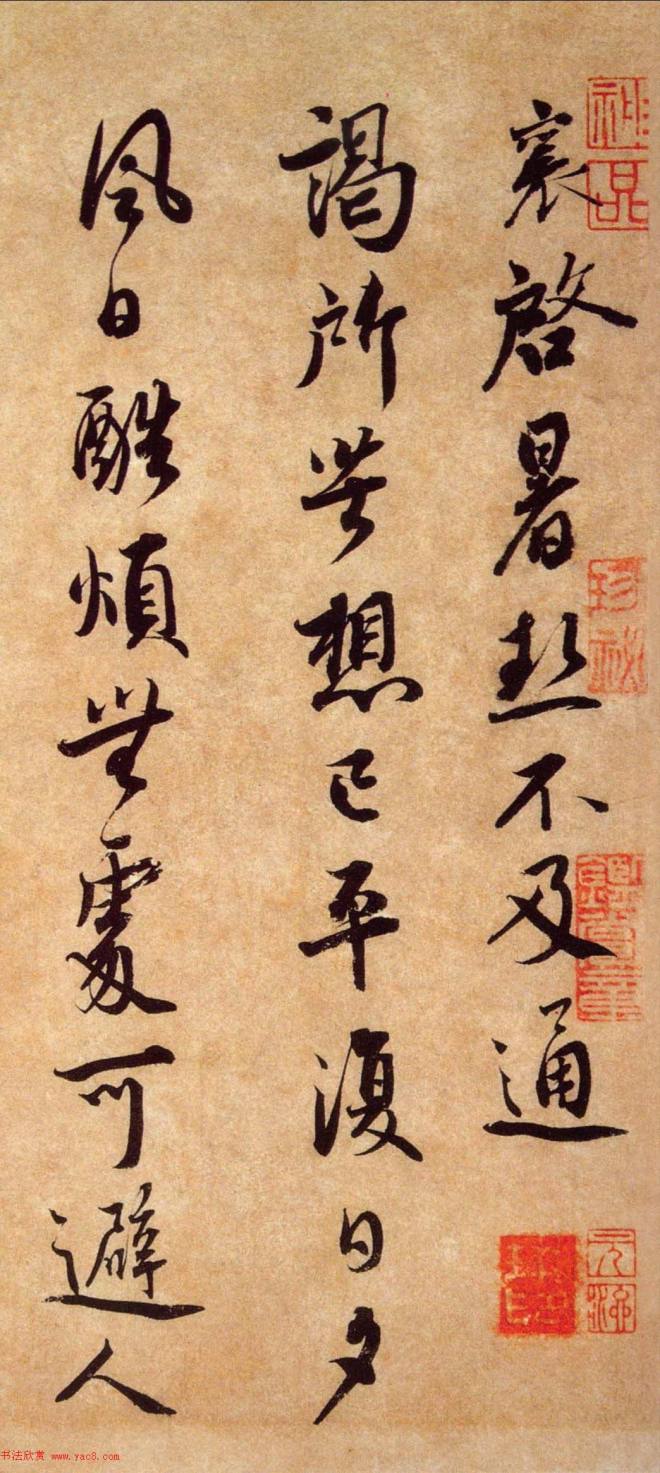 襄啓暑熱不及通
謁所苦想已平復日夕
風日酷煩無處可避人
書法欣赏 www.yac8.com